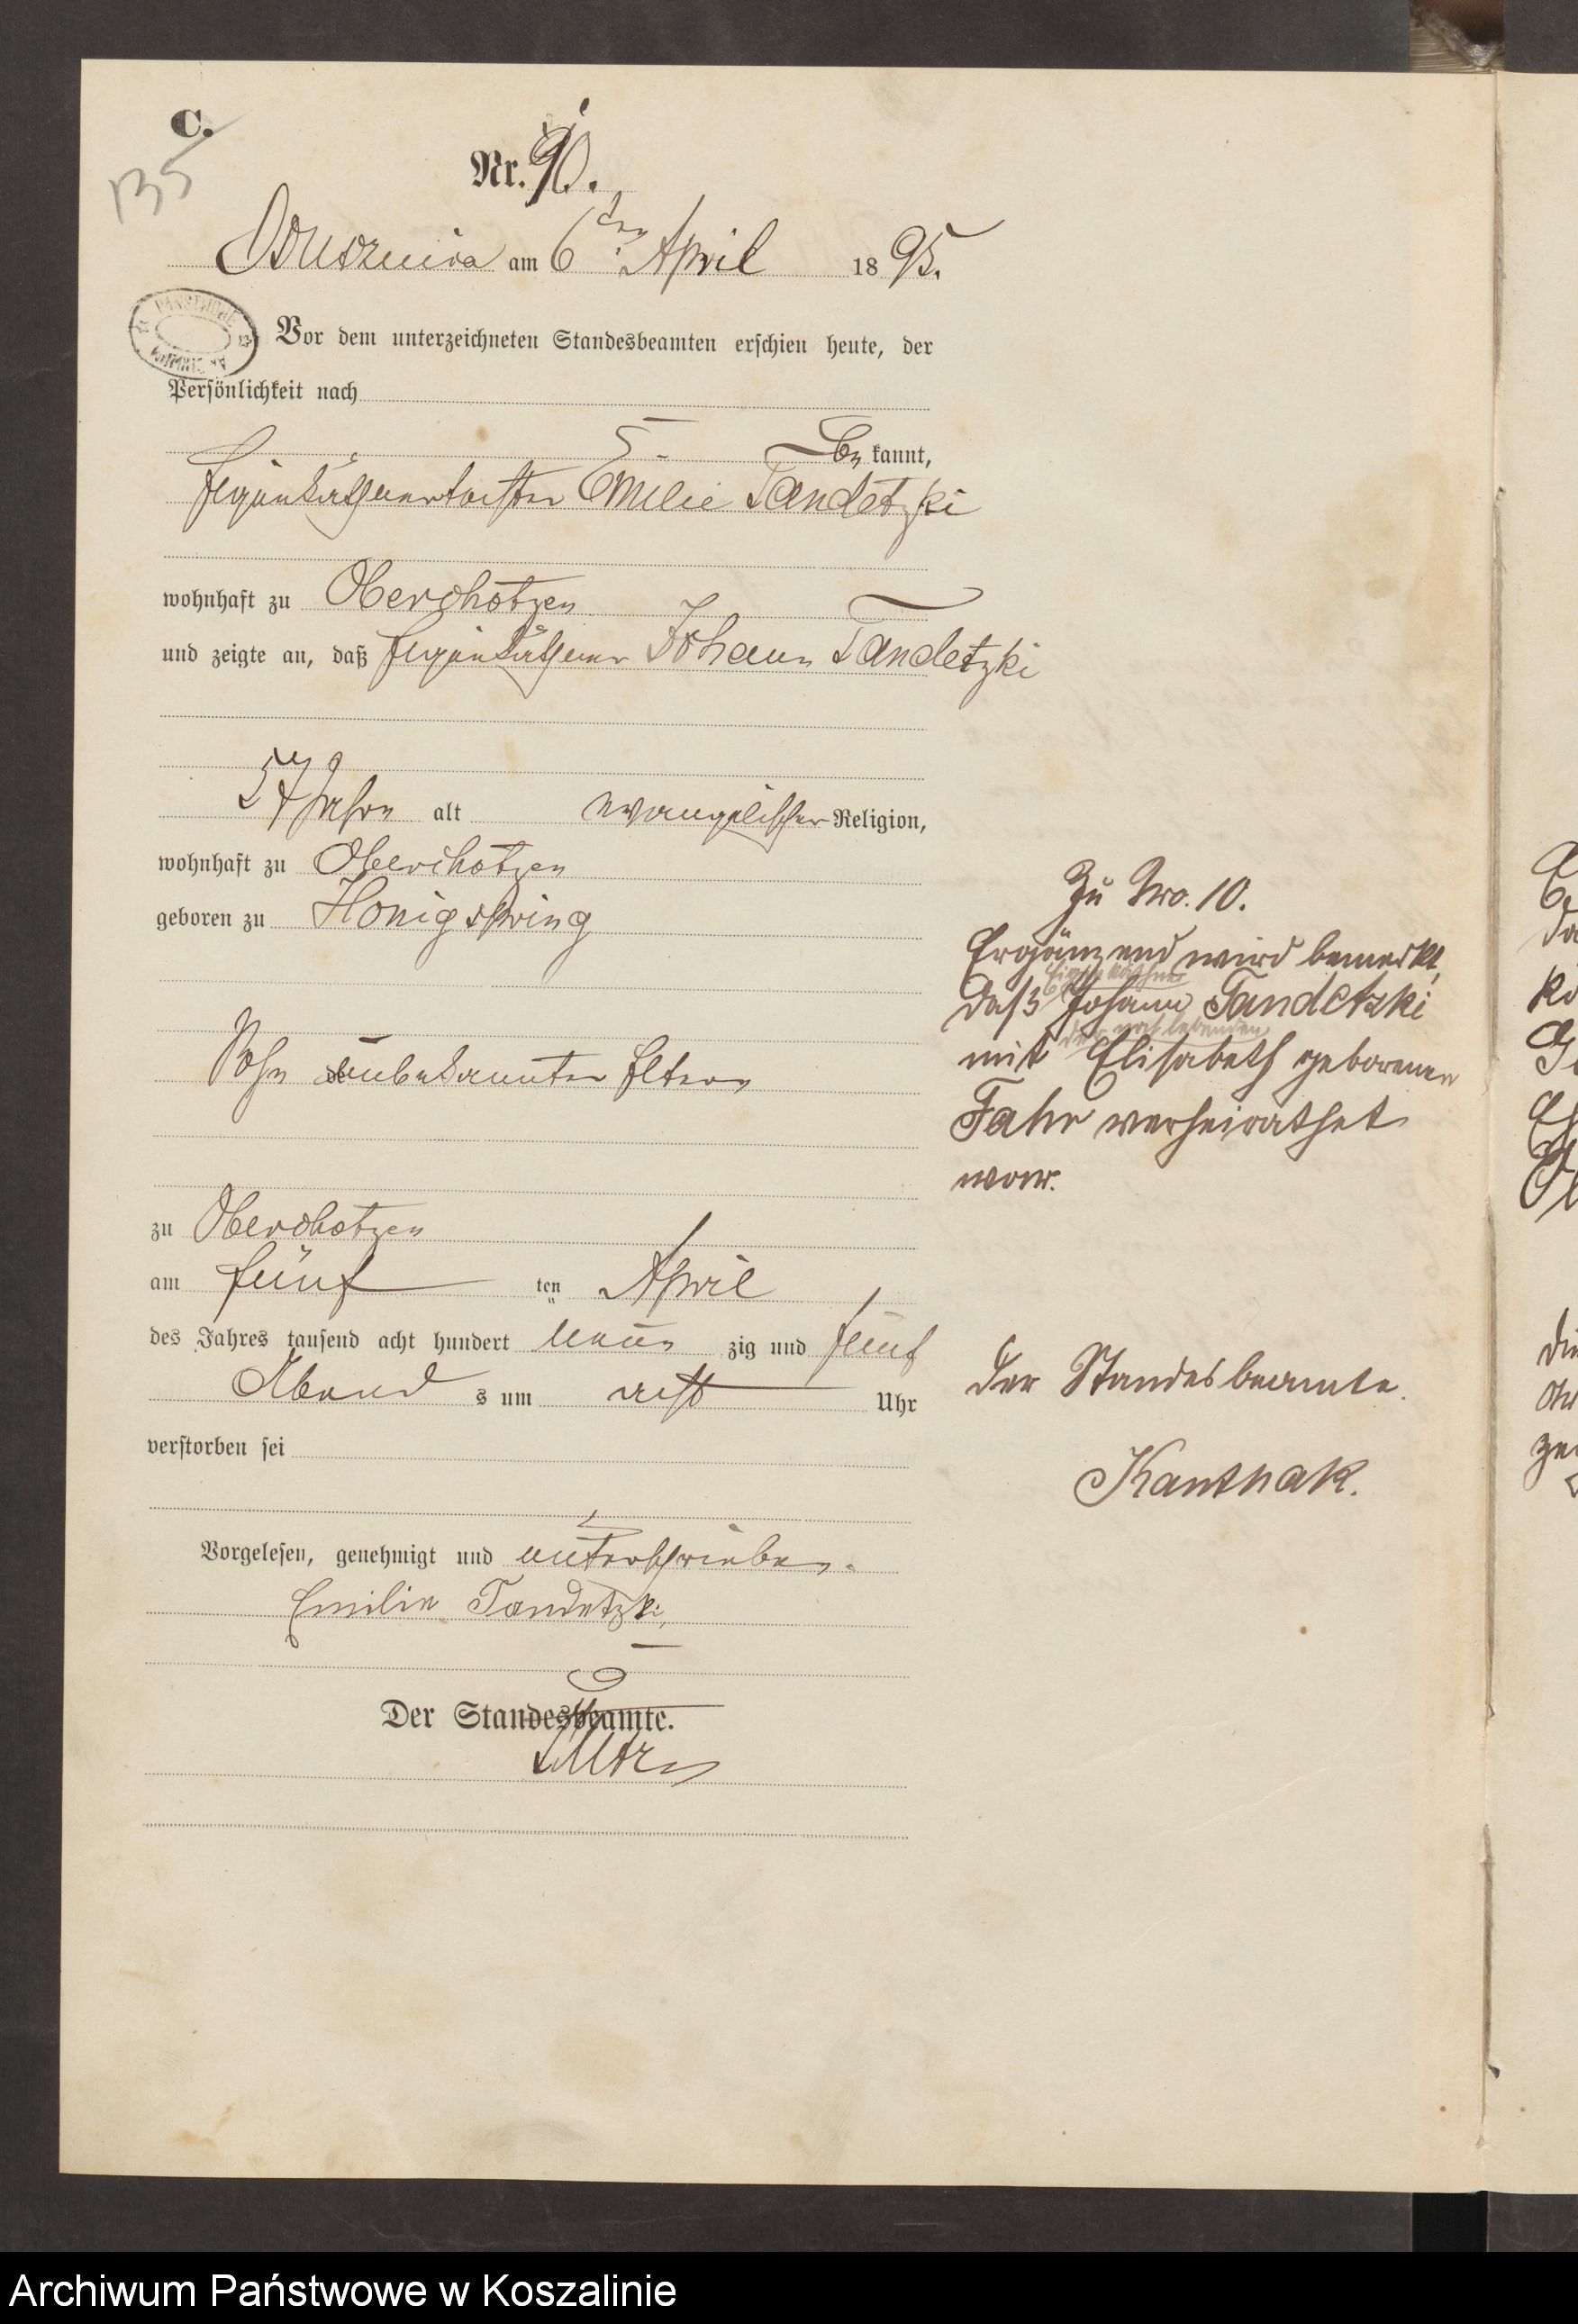 C.
135
Nr. 10.
am 6ten April 1895.
Vor dem unterzeichneten Standesbeamten erschien heute, der
Persönlichkeit nach
be kannt,
Eigenkäthnertochter Emilie Tandetzki
wohnhaft zu Oberchotzen
und zeigte an, daß Eigenkäthner Johann Tandetzki
57 Jahre alt evangelischer Religion,
wohnhaft zu Oberchotzen
geboren zu Honigspring
Sohn unbekannter Eltern
zu Oberchotzen
am fünf ten April
des Jahres tausend acht hundert neun zig und fünf
Abend s um acht Uhr
verstorben sei
Vorgelesen, genehmigt und unterschrieben.
Emilie Tandetzki
Der Standesbeamte.
Zu Nro. 10.
Ergänzend wird bemerkt,
daß Eigenkäthner Johann Tandetzki
mit der noch lebenden Elisabeth geborenen
Fahr verheirathet
war.
Der Standesbeamte.
Kanthak.
Archiwum Państwowe w Koszalinie